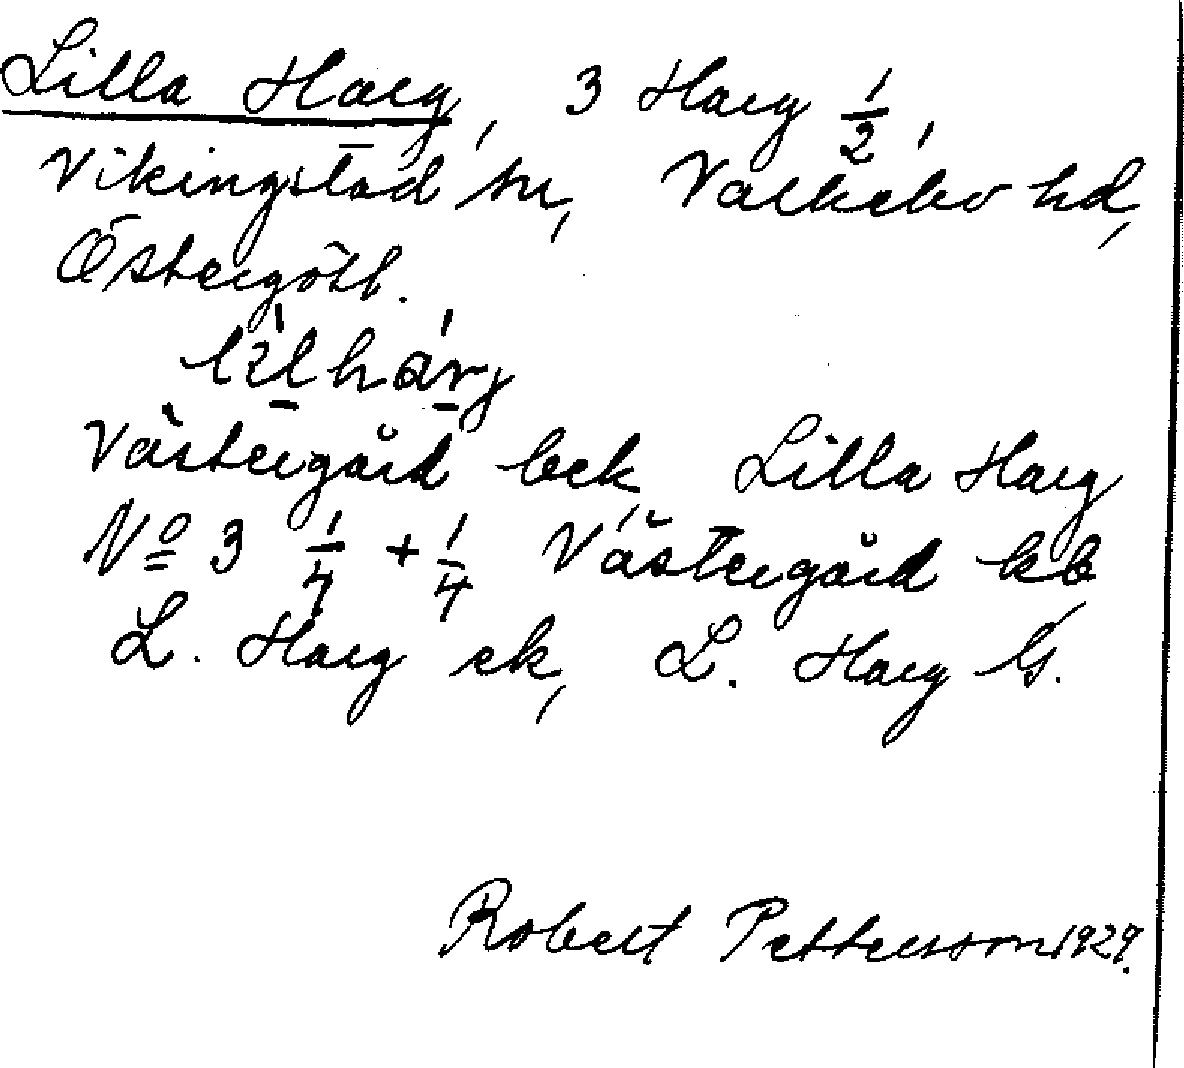 Lilla Harg, 3 Harg 1/2,
Vikingstad sn, Valkebo hd,
Östergötl.
Västergård bek, Lilla Harg
No 3 1/4 + 1/4 Västergård kb
L. Harg ek, L. Harg G.
Robert Pettersson 1929.